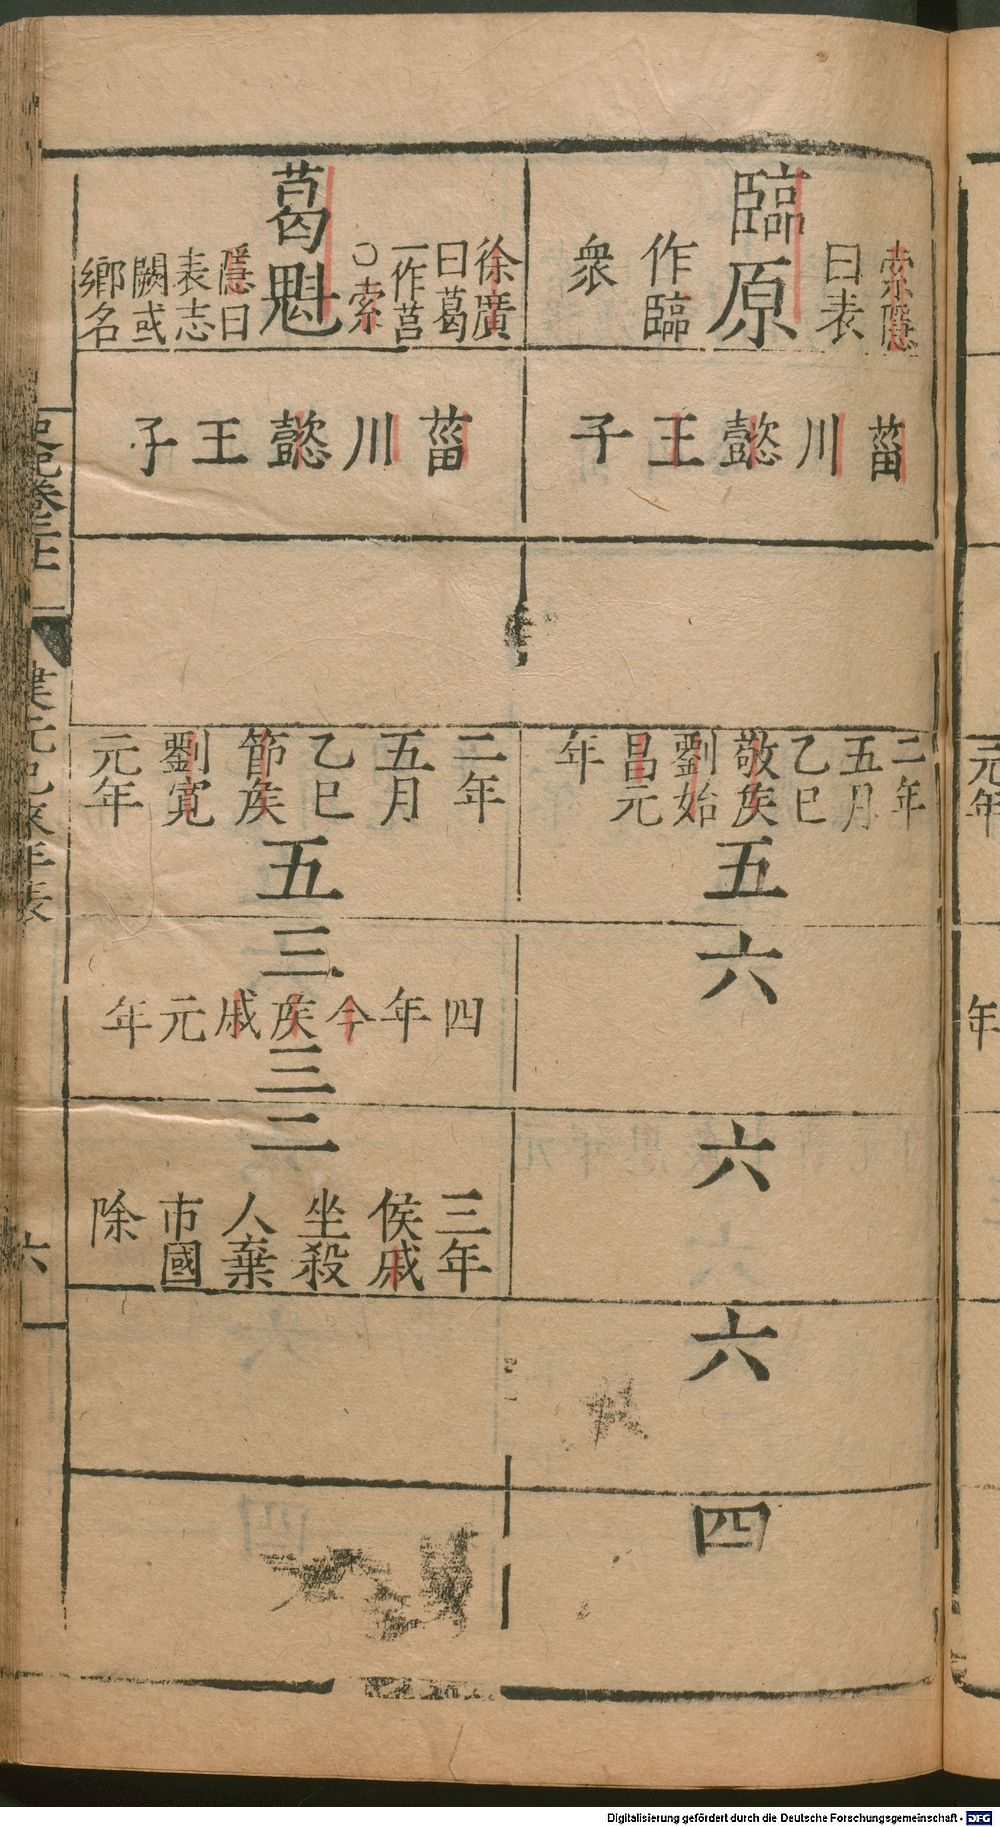 臨原
索隱
曰表
作臨
衆
菑川懿王子
二年
五月
乙巳
敬矦
劉始
昌元
年
五
六
六
六
四
葛魁
徐廣
曰葛
一作莒
○索
隱曰
表志
闕或
鄉名
菑川懿王子
二年
五月
乙巳
節矦
劉寬
元年
五
三
四年今矦戚元年
三
二
三年
侯戚
坐殺
人棄
市國
除
年表
六
元年
年
Digitalisierung gefördert durch die Deutsche Forschungsgemeinschaft - DFG